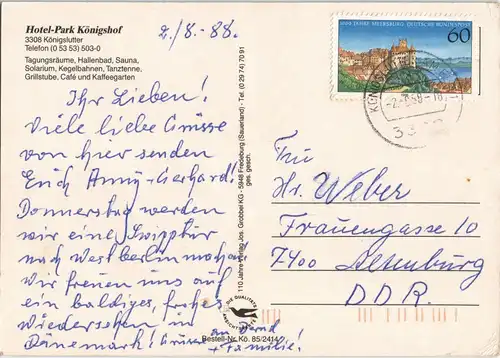 Hotel-Park Königshof
3308 Königslutter
Telefon (0 53 53) 503-0
Tagungsräume, Hallenbad, Sauna,
Solarium, Kegelbahnen, Tanztenne,
Grillstube, Café und Kaffeegarten
2/8.-88.
Ihr Lieben!
Viele liebe Grüsse
von hier senden
Euch Anny-Gerhard!
Donnerstag werden
wir eine
nach Westberlin machen.
Wir freuen uns auf
ein baldiges, frohes
Wiedersehen in
Dänemark! Grüsse an
+ Familie!
110 Jahre Verlag Jos. Grobbel KG - 5948 Fredeburg (Sauerland) - Tel. (0 29 74) 70 91
ges. gesch.
DIE QUALITÄTS
ANSICHTSKARTE
Bestell-Nr. Kö. 85/2414
1000 JAHRE MEERSBURG DEUTSCHE BUNDESPOST
60
Hr. Weber
Frauengasse 10
7400 Altenburg
DDR.